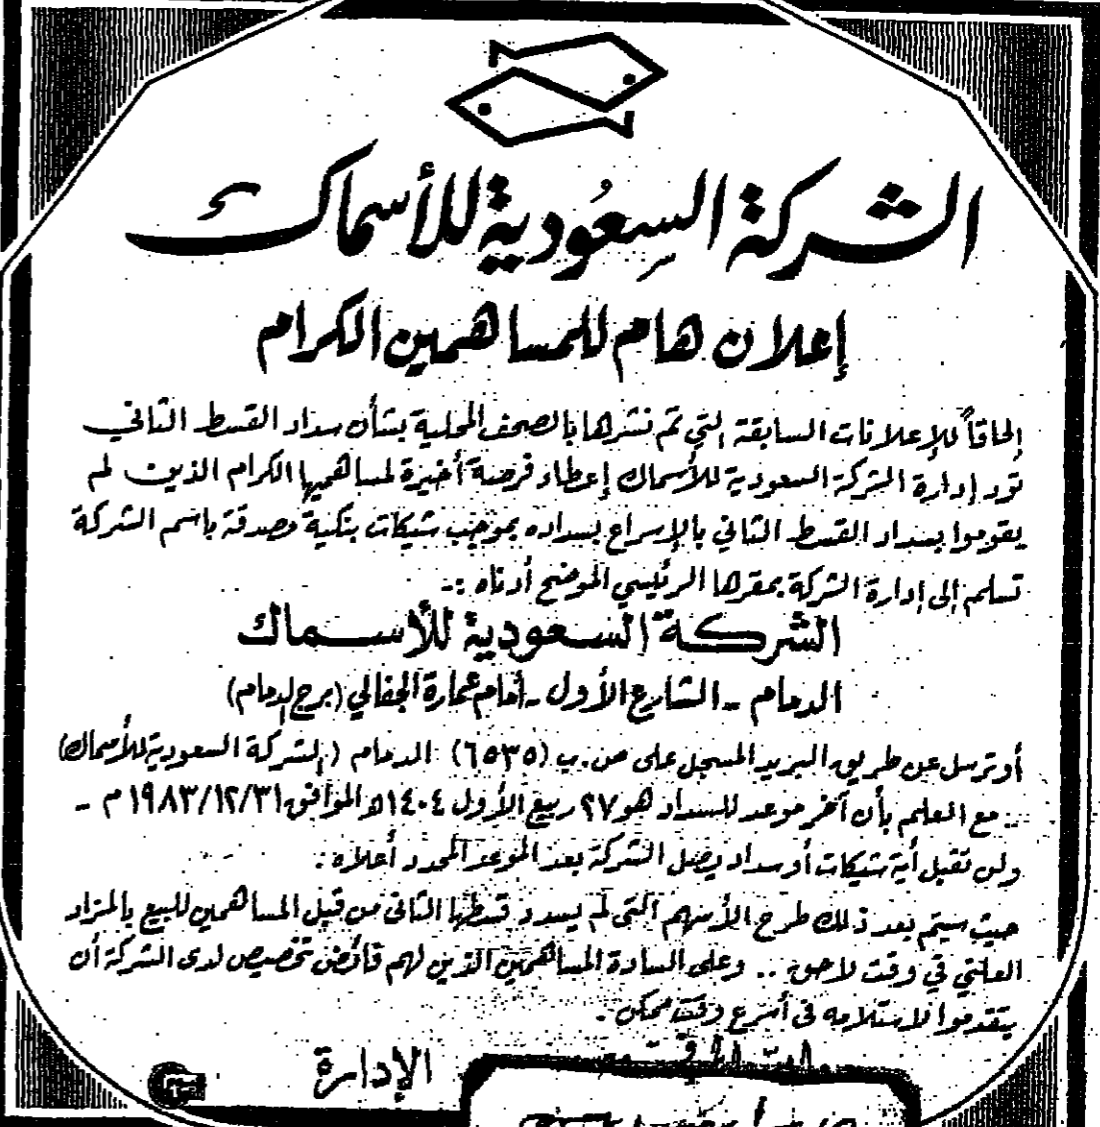 الشركة السعُودية للأسماك
إعلان هام للمساهمين الكرام
إلحاقاً للإعلانات السابقة التي تم نشرها بالصحف المحلية بشأن سداد القسط الثاني
تود إدارة الشركة السعودية للأسماك إعطاء فرصة أخيرة لمساهميها الكرام الذين لم
يقوموا بسداد القسط الثاني بالإسراع بسداده بموجب شيكات بنكية مصدقة باسم الشركة
تسلم إلى إدارة الشركة بمقرها الرئيسي الموضح أدناه :-
الشركة السعودية للأسماك
الدمام - الشارع الأول - أمام عمارة الجفالي (برج الدمام)
أو ترسل عن طريق البريد المسجل على ص.ب (٦٥٣٥) الدمام (الشركة السعودية للأسماك)
.. مع العلم بأن آخر موعد للسداد هو ٢٧ ربيع الأول ١٤٠٤ه الموافق ١٩٨٣/١٢/٣١ م -
ولن تقبل أية شيكات أو سداد يصل الشركة بعد الموعد المحدد أعلاه :
حيث سيتم بعد ذلك طرح الأسهم التي لم يسدد قسطها الثاني من قبل المساهمين للبيع بالمزاد
العلني في وقت لاحق .. وعلى السادة المساهمين الذين لهم فائض تخصيص لدى الشركة أن
يتقدموا لاستلامه في أسرع وقت ممكن .
الإدارة